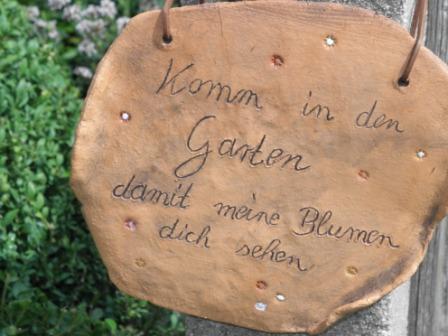 Komm in den
Garten
damit meine Blumen
dich sehen